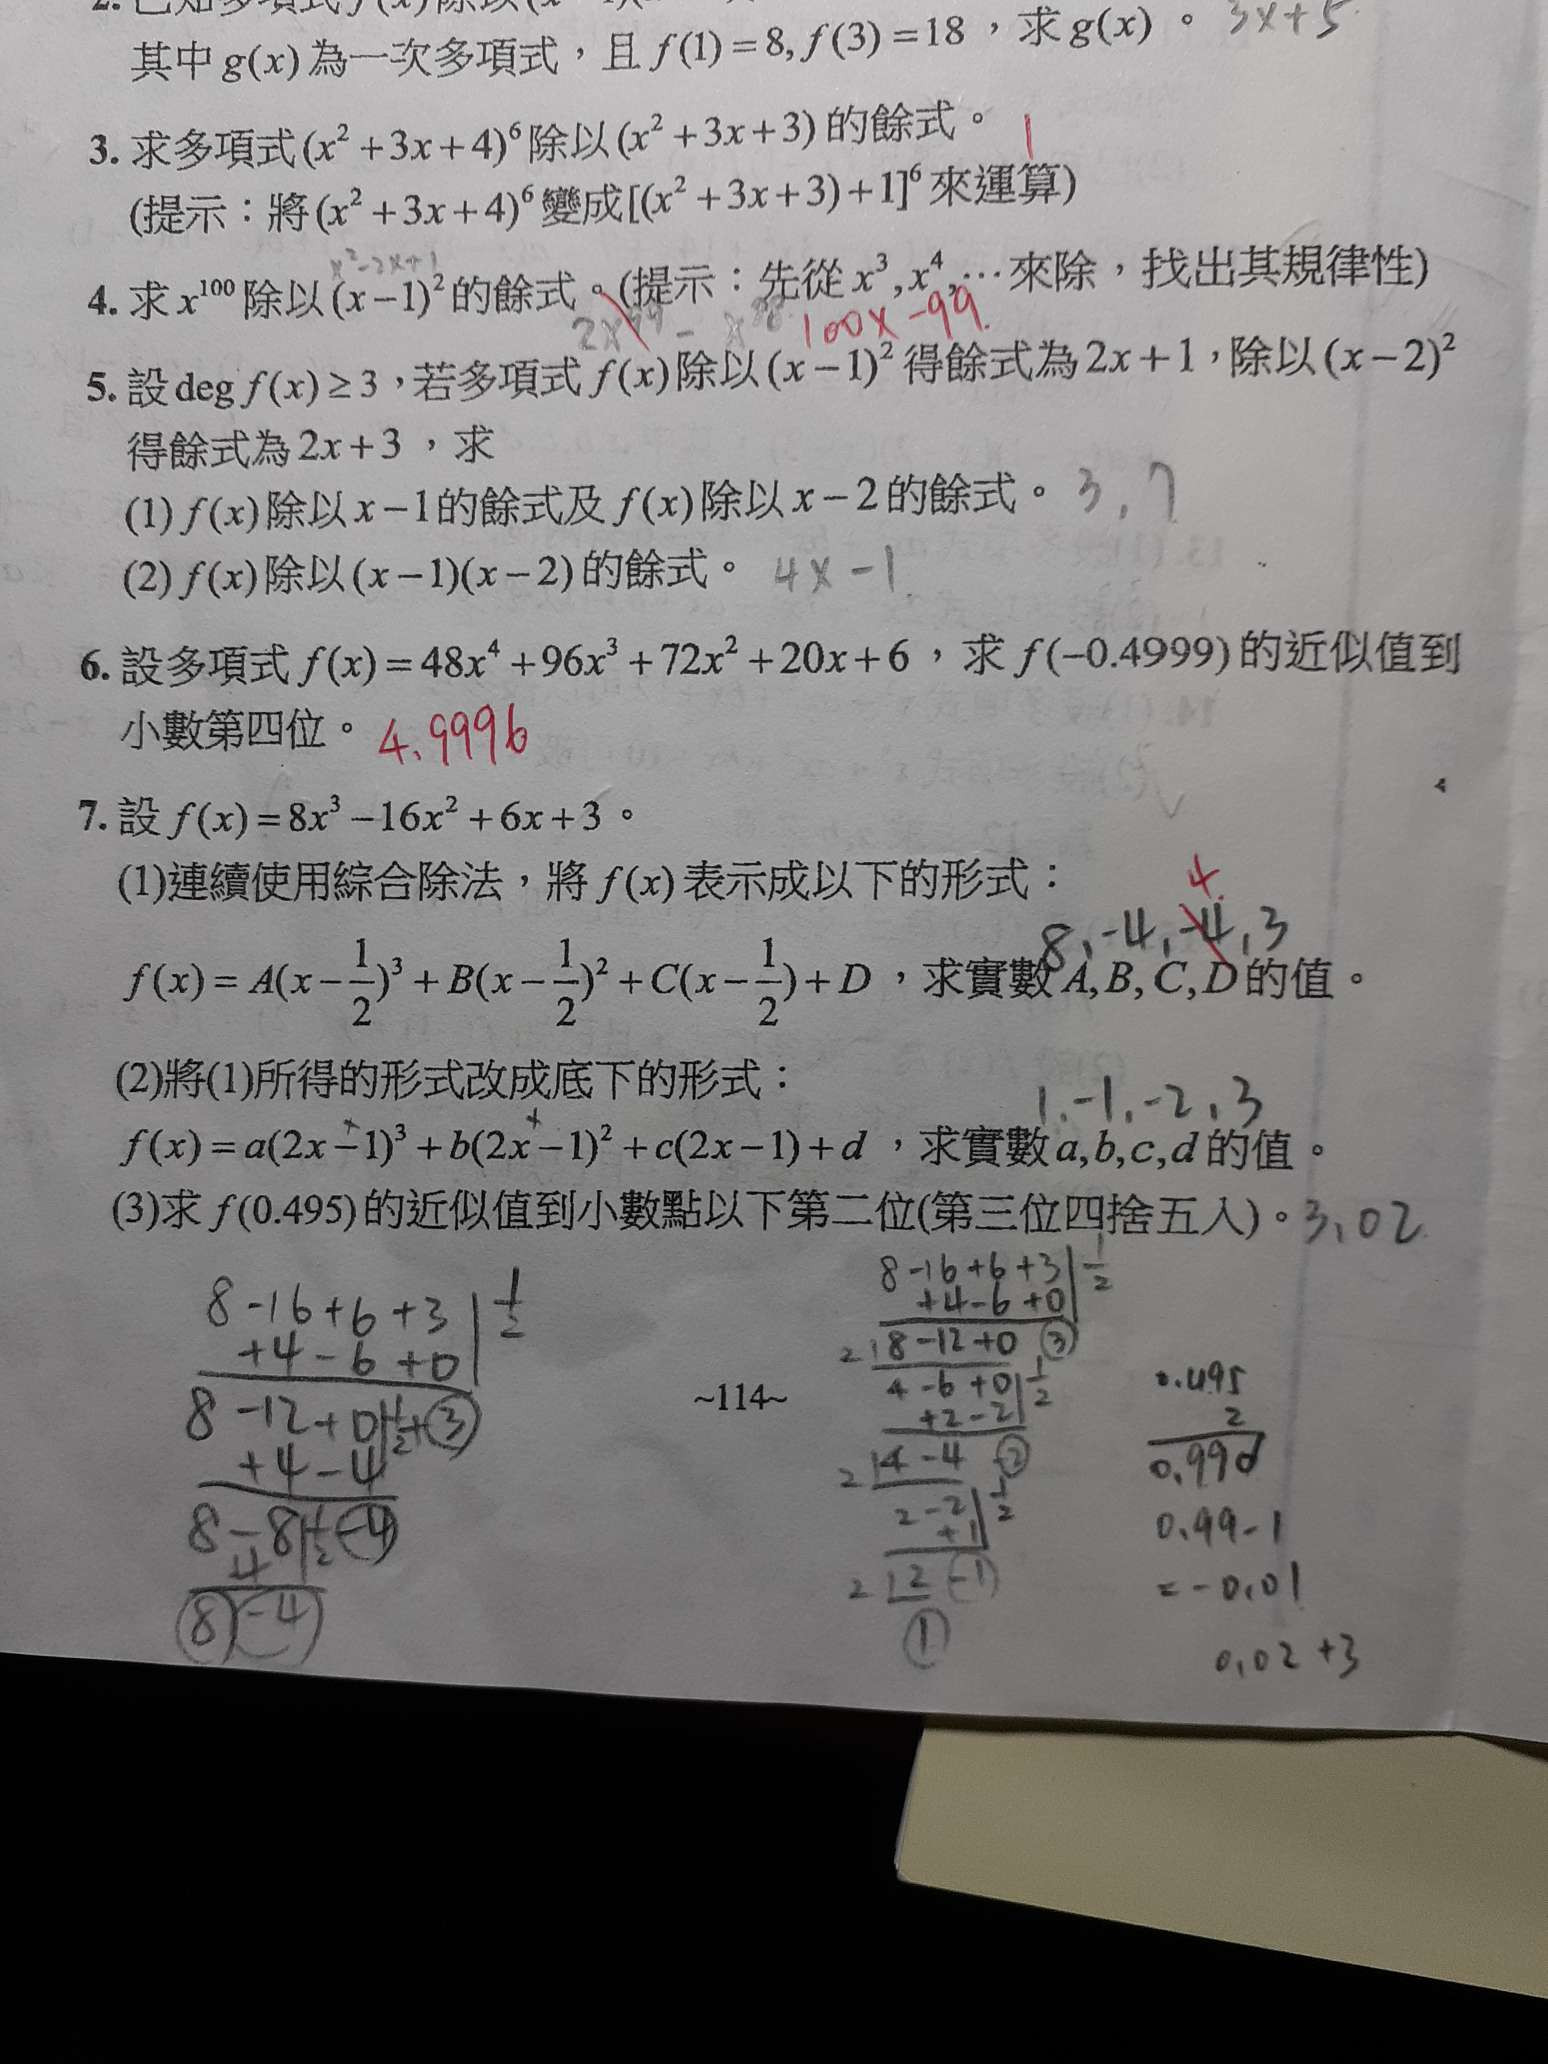 其中 g(x) 為一次多項式，且 f(1)=8, f(3)=18，求 g(x)。 3x+5
3. 求多項式 (x²+3x+4)⁶ 除以 (x²+3x+3) 的餘式。 1
(提示：將 (x²+3x+4)⁶ 變成 [(x²+3x+3)+1]⁶ 來運算)
x²-2x+1
4. 求 x¹⁰⁰ 除以 (x-1)² 的餘式。(提示：先從 x³, x⁴, … 來除，找出其規律性)
100x-99
5. 設 deg f(x) ≥ 3，若多項式 f(x) 除以 (x-1)² 得餘式為 2x+1，除以 (x-2)²
得餘式為 2x+3，求
(1) f(x) 除以 x-1 的餘式及 f(x) 除以 x-2 的餘式。 3, 7
(2) f(x) 除以 (x-1)(x-2) 的餘式。 4x-1
6. 設多項式 f(x)=48x⁴+96x³+72x²+20x+6，求 f(-0.4999) 的近似值到
小數第四位。 4.9996
7. 設 f(x)=8x³-16x²+6x+3。
(1)連續使用綜合除法，將 f(x) 表示成以下的形式：
4
8, -4, -4, 3
f(x)=A(x-1/2)³+B(x-1/2)²+C(x-1/2)+D，求實數 A,B,C,D 的值。
(2)將(1)所得的形式改成底下的形式：
1, -1, -2, 3
f(x)=a(2x-1)³+b(2x-1)²+c(2x-1)+d，求實數 a,b,c,d 的值。
(3)求 f(0.495) 的近似值到小數點以下第二位(第三位四捨五入)。 3.02
8-16+6+3 | 1/2
+4-6+0
8-12+0 | 1/2 + 3
+4-4
8-8 | 1/2 -4
4
8 -4
~114~
8-16+6+3 | 1/2
+4-6+0
2 | 8-12+0 3
4-6+0 | 1/2
+2-2
2 | 4-4 -2
2-2 | 1/2
+1
2 | 2 -1
1
0.495
2
0.990
0.99-1
=-0.01
0.02+3